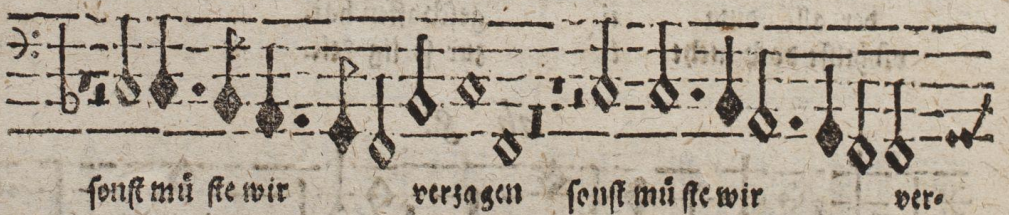 sonst mü ste wir verzagen sonst mü ste wir ver-